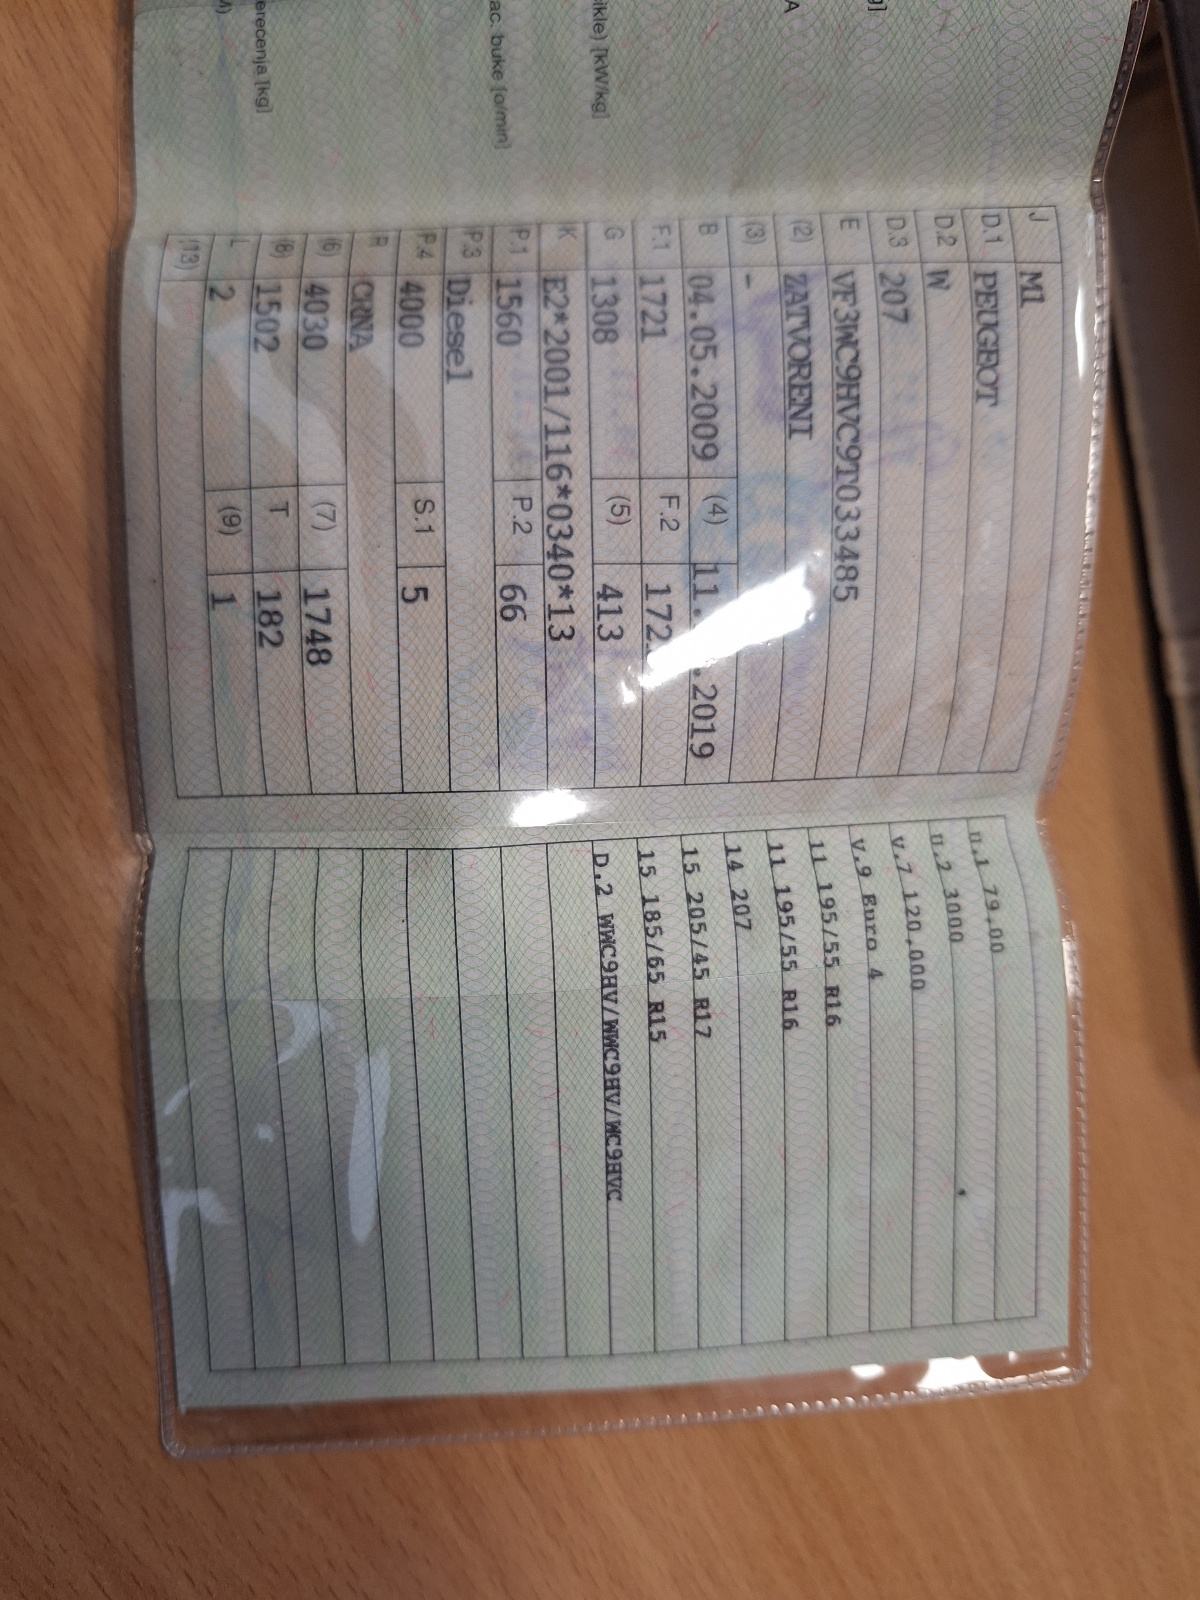 g]
A
ikle) [kW/kg]
ac. buke [o/min]
erecenja [kg]
M)
J M1
D.1 PEUGEOT
D.2 W
D.3 207
E VF3WC9HVC9T033485
(2) ZATVORENI
(3) -
B 04.05.2009 (4) 11. .2019
F.1 1721 F.2 172
G 1308 (5) 413
K E2*2001/116*0340*13
P.1 1560 P.2 66
P.3 Diesel
P.4 4000 S.1 5
R CRNA
(6) 4030 (7) 1748
(8) 1502 T 182
L 2 (9) 1
(13)
n.1 79.00
n.2 3000
V.7 120.000
V.9 Euro 4
11 195/55 R16
11 195/55 R16
14 207
15 205/45 R17
15 185/65 R15
D.2 WWC9HV/WWC9HV/WC9HVC